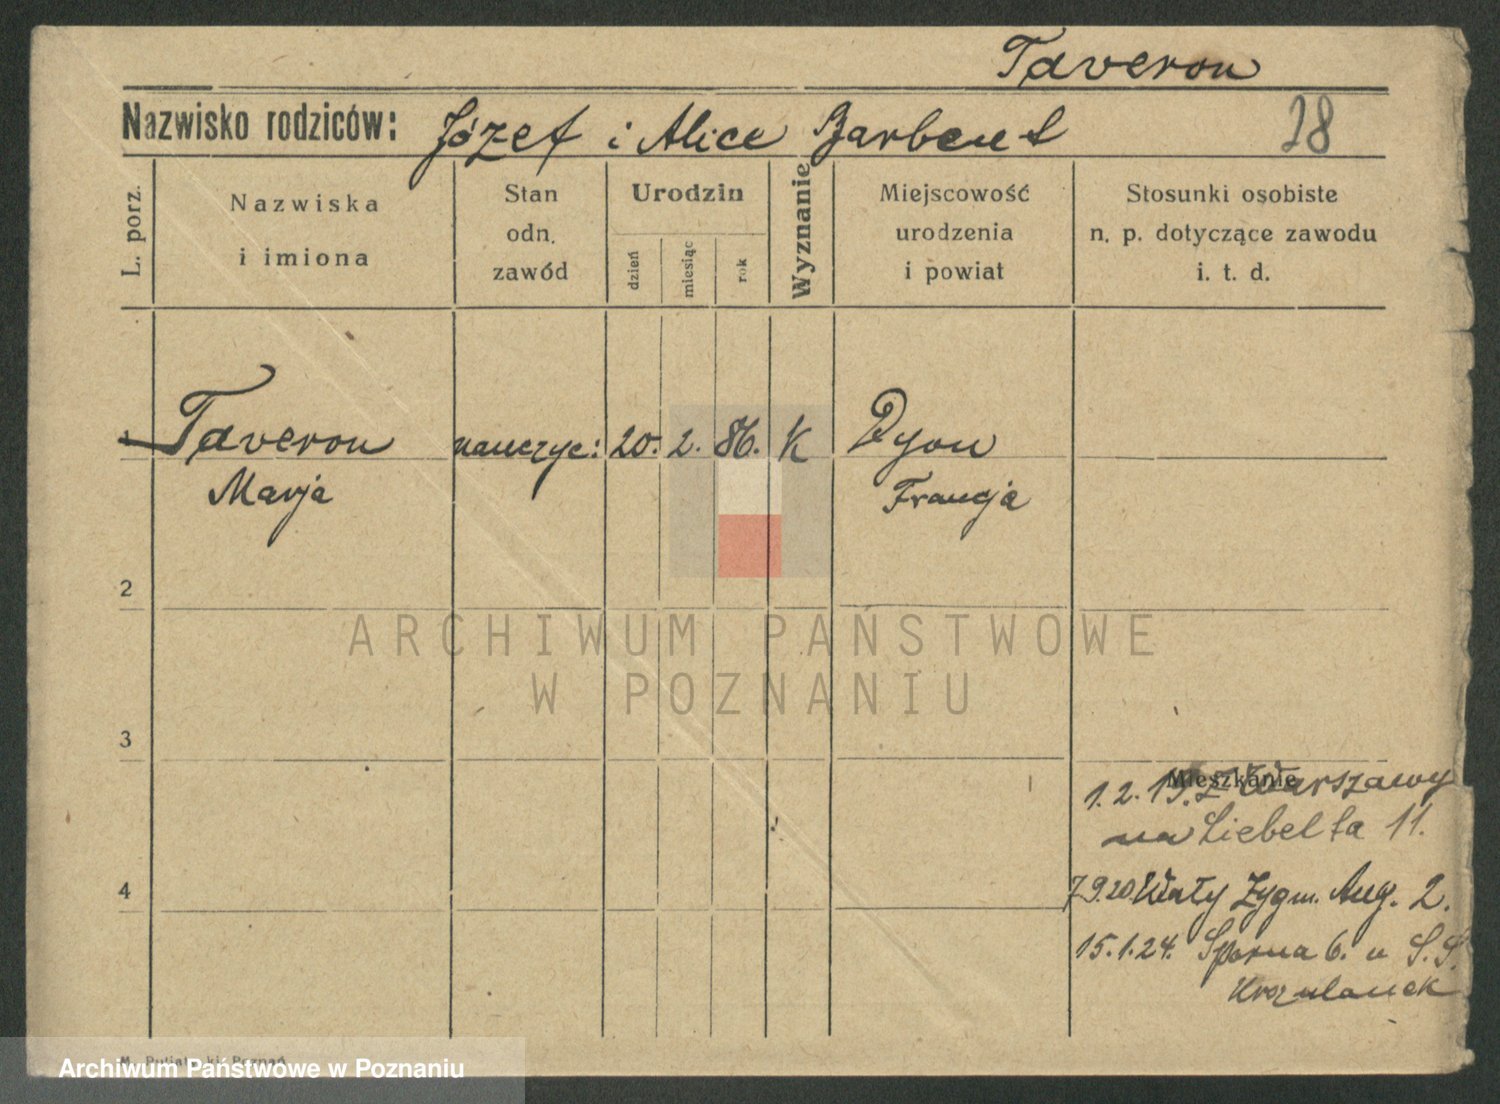 Taveron
Nazwisko rodziców: Józef i Alice Barbent
28
L. porz.
Nazwiska
i imiona
Stan
odn.
zawód
Urodzin
dzień
miesiąc
rok
Wyznanie
Miejscowość
urodzenia
i powiat
Stosunki osobiste
n. p. dotyczące zawodu
i. t. d.
1 Taveron nauczyc: 20. 2. 86. K Dyon
Marja Francja
2
3
Mieszkanie
1.2.19. z Warszawy
na Libelta 11.
4
7.9.20 Wały Zygm. Aug. 2.
15.1.24. Sporna 6. u S.S.
Urszulanek
ARCHIWUM PAŃSTWOWE
W POZNANIU
Poznań
Archiwum Państwowe w Poznaniu